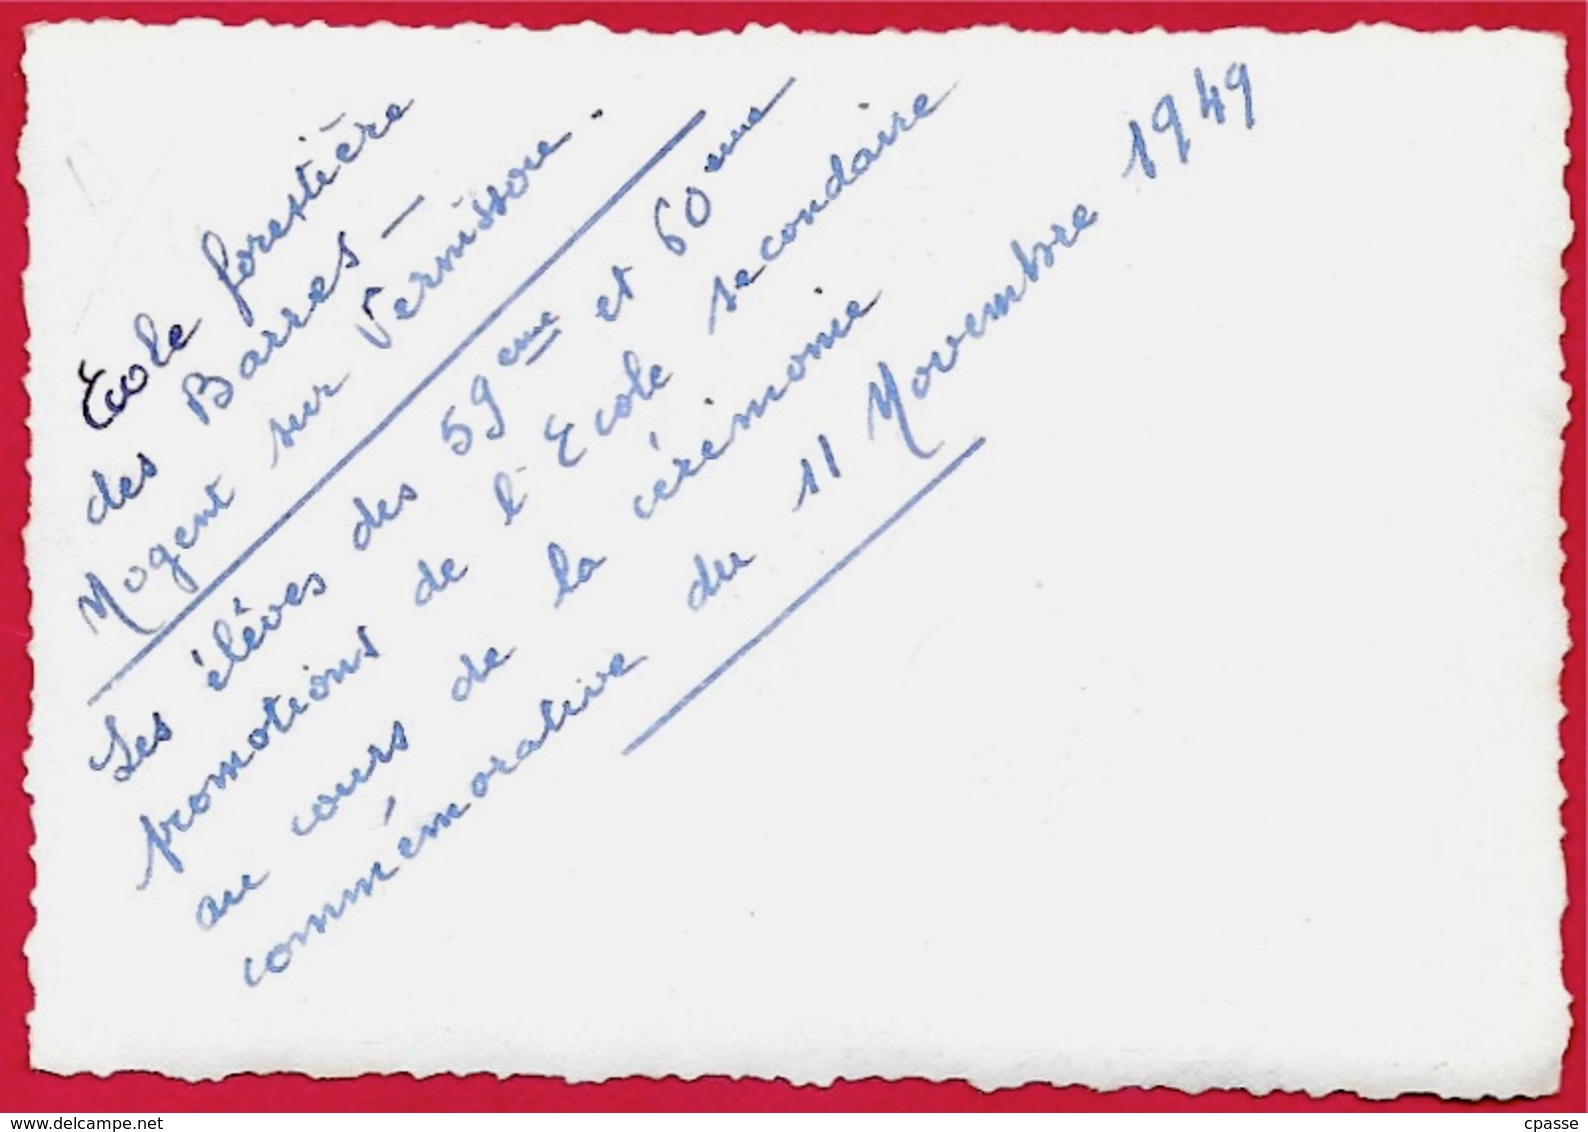 Ecole forestière
des Barres —
Nogent sur Vernisson.
Les élèves des 59eme et 60eme
promotions de l'Ecole secondaire
au cours de la cérémonie
commémorative du 11 Novembre 1949
www.delcampe.net
cpasse